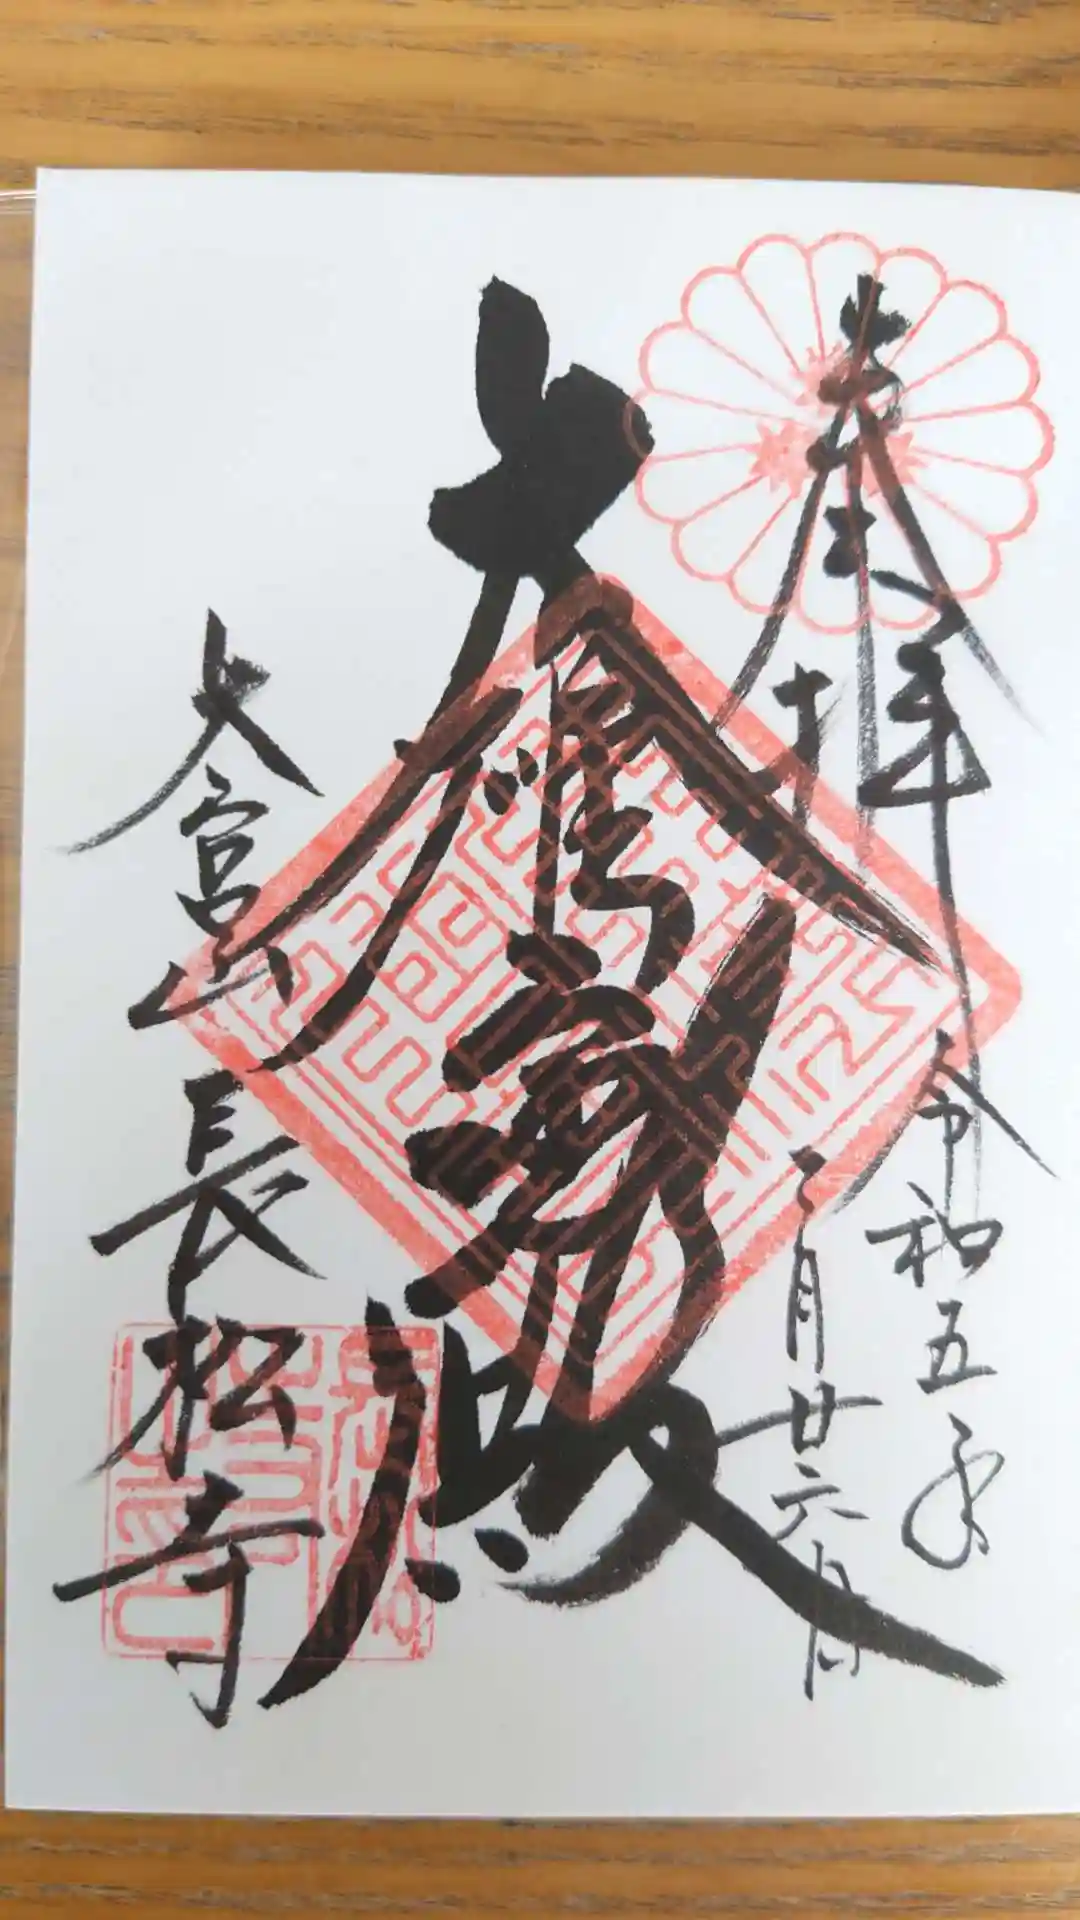 奉拝
令和五年
二月廿六日
大雄寶殿
大宮山
長松寺